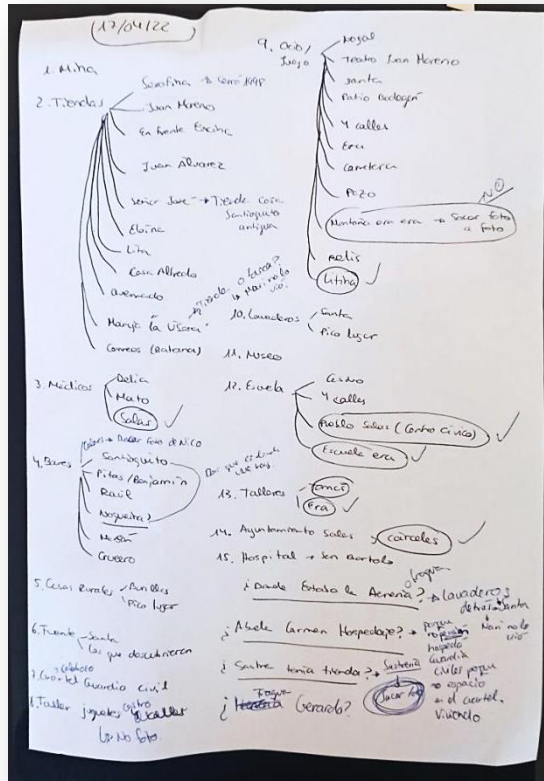 17/04/22
1. Mina
2. Tiendas
Serafina → Cerró 1998
Juan Moreno
En frente Encina
Juan Alvarez
Señor José → Tienda Casa
Santiaguito
antigua
Eloina
Lita
Casa Alfredo
Maruja la Usara → Tienda o busca?
↳ Mari no lo
vió
Correos (Batana)
3. Médicos
Delia
Mato
Salas ✓
4. Bares
Santiaguito
Pitas / Benjamín
Raúl
Nogueira?
Crucero
5. Casas Rurales
Pico lugar
6. Fuente
Santa
Las que descubrieron
7. Cuartel Guardia Civil
8. Taller juguetes
4 calles
↳ No foto
9. Ocio /
Juego
Nogal
Teatro Juan Moreno
Santa
Patio Bodegón
4 calles
Era
Carretera
Pozo
NO
Montaña era era → Sacar foto
a foto
Litina ✓
10. Lavaderos
Santa
Pico lugar
11. Museo
12. Escuela
Casino
4 calles
Pablo Salas (Centro Cívico) ✓
Escuela era ✓
13. Talleres
Era ✓
14. Ayuntamiento Salas
cárceles ✓
15. Hospital → San Bartolo
Fragua
¿Donde Estaba la Herrería? → Lavaderos
detrás Santa
↳ Mari no lo
vió
¿Abuela Carmen Hospedaje? →
porque
hospedó
Guardia
civiles porque
espacio
en el cuartel.
viviendo
¿Sastre tenía tienda? → Sastrería
Sacar foto
Fragua
¿Herrería Gerardo?